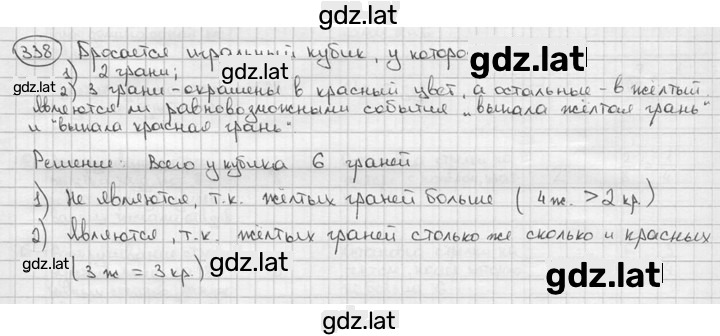 gdz.lat
338 Бросается игральный кубик, у которо
gdz.lat
gdz.lat
1) 2 грани;
gdz.lat
2) 3 грани - окрашены в красный цвет, а остальные - в жёлтый.
Являются ли равновозможными события "выпала жёлтая грань"
и "выпала красная грань"
Решение: Всего у кубика 6 граней
1) Не являются, т.к. жёлтых граней больше ( 4 ж. > 2 кр.)
2) Являются, т.к. жёлтых граней столько же сколько и красных
gdz.lat (3 ж = 3 кр.) gdz.lat gdz.lat
gdz.lat